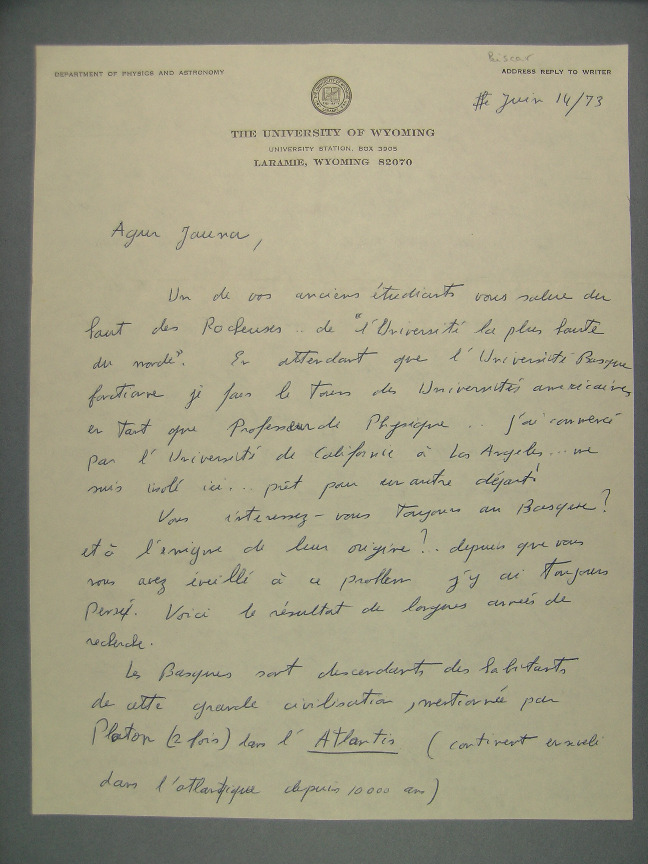 Biscar
DEPARTMENT OF PHYSICS AND ASTRONOMY
ADDRESS REPLY TO WRITER
Juin 14/73
THE UNIVERSITY OF WYOMING
UNIVERSITY STATION, BOX 3905
LARAMIE, WYOMING 82070
Agur Jauna,
Un de vos anciens étudiants vous salue du
haut des Rocheuses .. de "l'Université la plus haute
du monde". En attendant que l'Université Basque
fonctionne je fais le tour des Universités americaines
en tant que Professeur de Physique .. j'ai commencé
par l'Université de Californie à Los Angeles... me
suis isolé ici... prêt pour un autre départ!
Vous interessez-vous toujours au Basque?
et à l'enigme de leur origine?.. depuis que vous
nous avez éveillé à ce problem j'y ai toujours
pensé. Voici le résultat de longues années de
recherche.
Les Basques sont descendants des habitants
de cette grande civilisation, mentionnée par
Platon (2 fois) dans l'Atlantis (continent enseveli
dans l'atlantique depuis 10 000 ans)